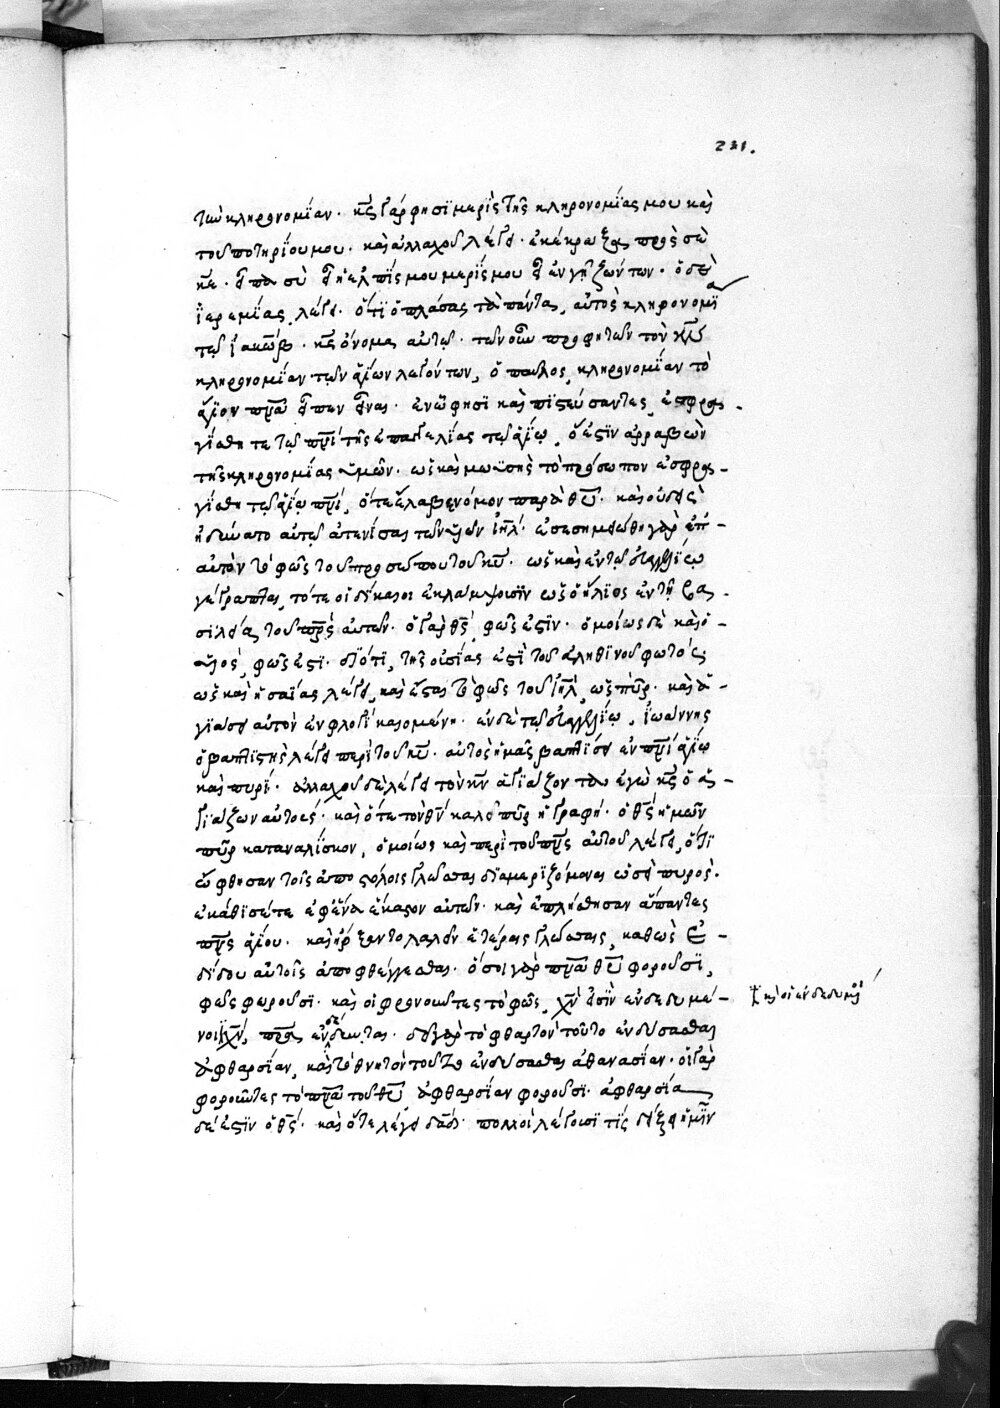 231.
τὼν κληρονομίαν. κς γάρ φησϊ μερὶς τῆς κληρονομίας μου καὶ
τοῦ ποτηρΐου μου. καὶ ἀλλαχοῦ λέγει. ἐκέκραξα πρὸς σὲ
κε. εἶπα σὺ εἶ ἡ ἐλπίς μου μερΐς μου εἶ ἐν γῆ ζώντων. ὁ δὲ
ἱερεμίας λέγει. ὅτϊ ὁ πλάσας τὰ πάντα, αὐτὸς κληρονομΐα
τῶ ἰακώβ. κς ὄνομα αὐτῶ. τῶν οὖν προφητῶν τὸν χν
κληρονομΐαν τῶν ἁγίων λεγόντων, ὁ παῦλος κληρονομΐαν τὸ
ἅγϊον πνα εἶπεν εἶναι. ἐν ὧ φησὶ καὶ πϊστεύσαντες, ἐσφρα-
γίσθητε τῶ πνι τῆς ἐπαγγελίας τῶ ἁγΐω, ὅ ἐστϊν ἀρραβὼν
τῆς κληρονομΐας ὑμῶν. ὡς καὶ μωϋσῆς τὸ πρόσωπον ἐσφρα-
γίσθη τῶ ἁγΐω πνι, ὅτε ἔλαβε νόμον παρὰ θυ. καὶ οὐδεὶς
ἠδύνατο αὐτῶ ἀτενίσαι τῶν υἱῶν ιηλ. ἐσεσημείωθη γὰρ ἐπ'-
αὐτὸν τὸ φῶς τοῦ προσώπου τοῦ κυ. ὡς καὶ ἐν τῶ εὐαγγελΐω
γέγραπται, τότε οἱ δίκαιοι ἐκλάμψουσϊν ὡς ὁ ἥλϊος ἐν τῆ βα-
σϊλεία τοῦ πρς αὐτῶν. ὁ γὰρ θς φῶς ἐστϊν. ὁμοίως δὲ καὶ ὁ-
υἱὸς, φῶς ἐστϊ. διότϊ, τῆς οὐσίας ἐστϊ τοῦ ἀληθϊνοῦ φωτός.
ὡς καὶ ἡσαΐας λέγει, καὶ ἔσται τὸ φῶς τοῦ ιηλ, ὡς πῦρ. καὶ ἁ-
γϊάσει αὐτὸν ἐν φλογὶ καιομένη. ἐν δὲ τῶ εὐαγγελΐω, ἰωάννης
ὁ βαπτϊστὴς λέγει περὶ τοῦ κυ. αὐτὸς ἡμᾶς βαπτΐσει ἐν πνι ἁγΐω
καὶ πυρί. ἀλλαχοῦ δὲ λέγει τὸν κν ἁγϊάζοντα ἐγὼ κς ὁ ἁ-
γϊάζων αὐτούς. καὶ ὅτε τὸν θν καλεῖ πῦρ ἡ γραφή. ὁ θς ἡμῶν
πῦρ καταναλΐσκον, ὁμοίως καὶ περὶ τοῦ πνς αὐτοῦ λέγει, ὅτϊ
ὤφθησαν τοῖς ἀποστόλοις γλῶσσαι δϊαμερϊζόμεναι ὡσεὶ πυρὸς.
ἐκάθϊσέ τε ἐφ' ἕνα ἕκαστον αὐτῶν. καὶ ἐπλήσθησαν ἅπαντες
πνς ἁγΐου. καὶ ἤρξαντο λαλεῖν ἑτέραις γλώσσαις, καθὼς ἐ-
δΐδου αὐτοῖς ἀποφθέγγεσθαι. ὅσοι γὰρ πνα θυ φοροῦσϊ,
φῶς φοροῦσϊ. καὶ οἱ φοροῦντες τὸ φῶς, χν εἰσὶν ἐνδεδυμέ-
νοι χν, πρα ἐνδέδυνται. δεῖ γὰρ τὸ φθαρτὸν τοῦτο ἐνδύσασθαι
ἀφθαρσΐαν, καὶ τὸ θνητὸν τοῦτο ἐνδύσασθαι ἀθανασΐαν. οἱ γὰρ
φοροῦντες τὸ πνα τοῦ θυ, ἀφθαρσΐαν φοροῦσϊ. ἀφθαρσΐα
δέ ἐστϊν ὁ θς. καὶ ὅτε λέγει δαδ. πολλοὶ λέγουσϊ τΐς δείξει ἡμῖν
καὶ οἱ ἐνδεδυμένοι